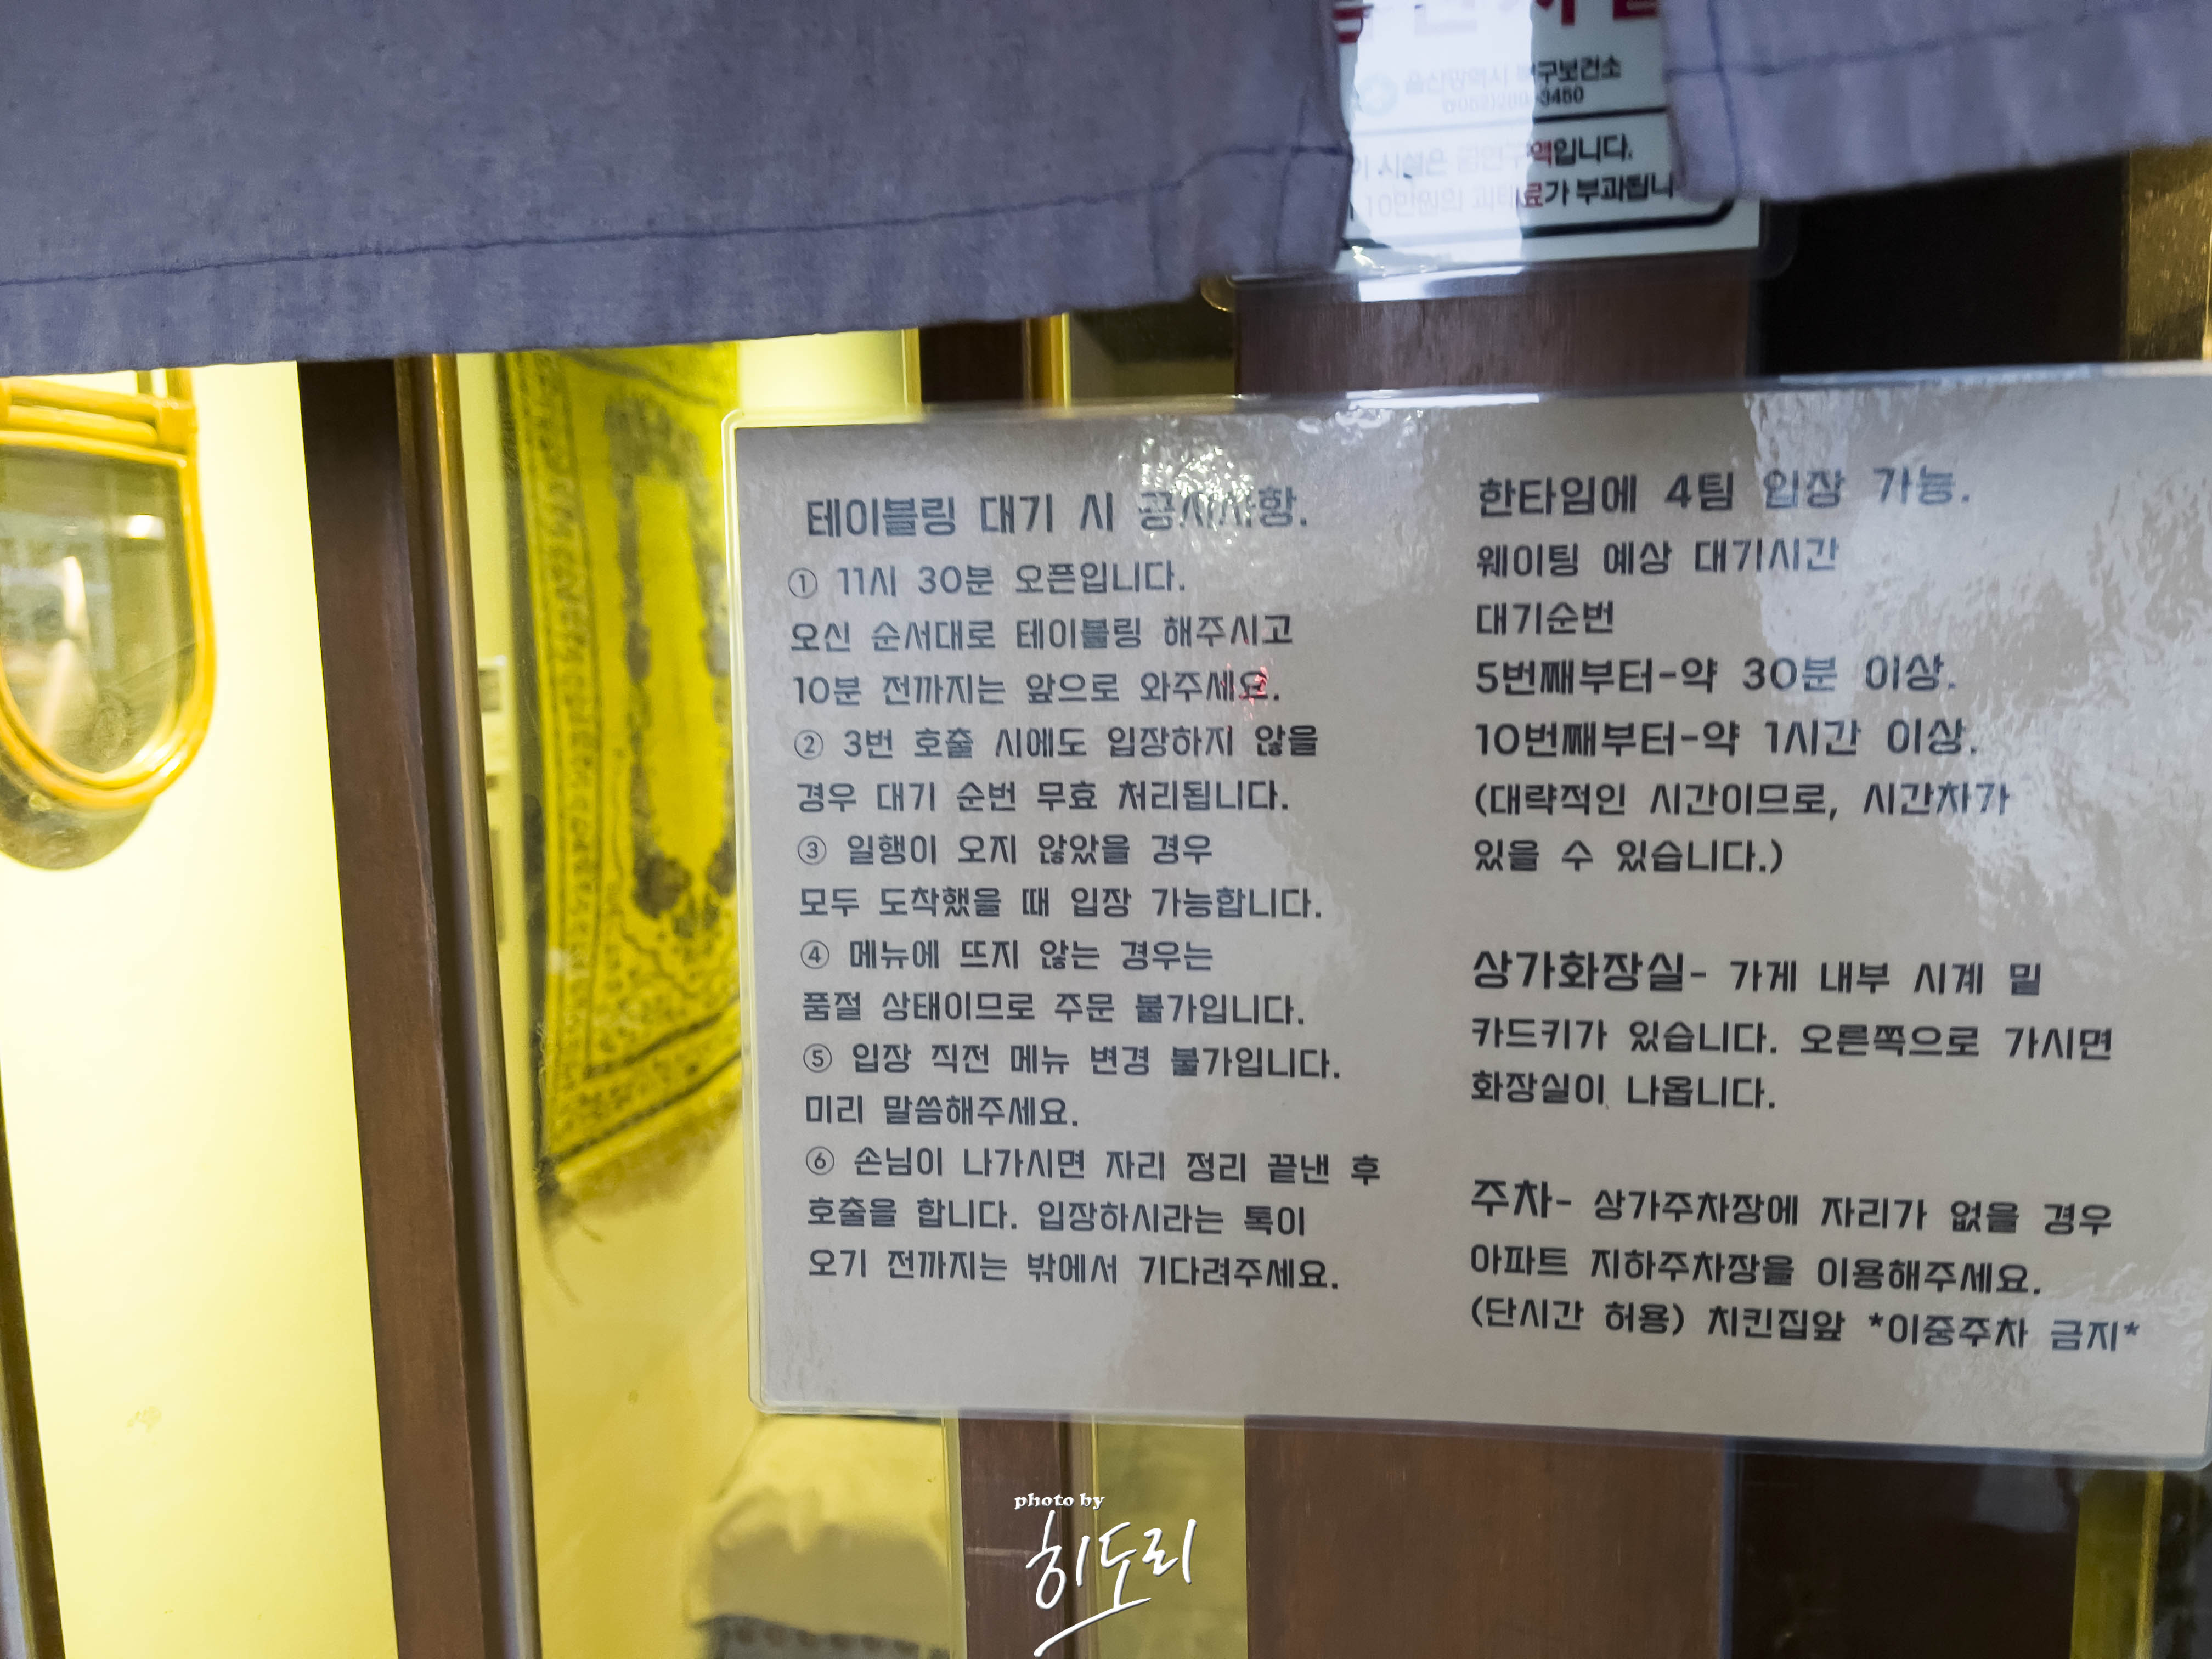 구보건소
3450
이 시설은 금연구역입니다.
10만원의 과태료가 부과됩니
테이블링 대기 시 공지사항.
① 11시 30분 오픈입니다.
오신 순서대로 테이블링 해주시고
10분 전까지는 앞으로 와주세요.
② 3번 호출 시에도 입장하지 않을
경우 대기 순번 무효 처리됩니다.
③ 일행이 오지 않았을 경우
모두 도착했을 때 입장 가능합니다.
④ 메뉴에 뜨지 않는 경우는
품절 상태이므로 주문 불가입니다.
⑤ 입장 직전 메뉴 변경 불가입니다.
미리 말씀해주세요.
⑥ 손님이 나가시면 자리 정리 끝낸 후
호출을 합니다. 입장하시라는 톡이
오기 전까지는 밖에서 기다려주세요.
한타임에 4팀 입장 가능.
웨이팅 예상 대기시간
대기순번
5번째부터-약 30분 이상.
10번째부터-약 1시간 이상.
(대략적인 시간이므로, 시간차가
있을 수 있습니다.)
상가화장실- 가게 내부 시계 밑
카드키가 있습니다. 오른쪽으로 가시면
화장실이 나옵니다.
주차- 상가주차장에 자리가 없을 경우
아파트 지하주차장을 이용해주세요.
(단시간 허용) 치킨집앞 *이중주차 금지*
photo by
히도리